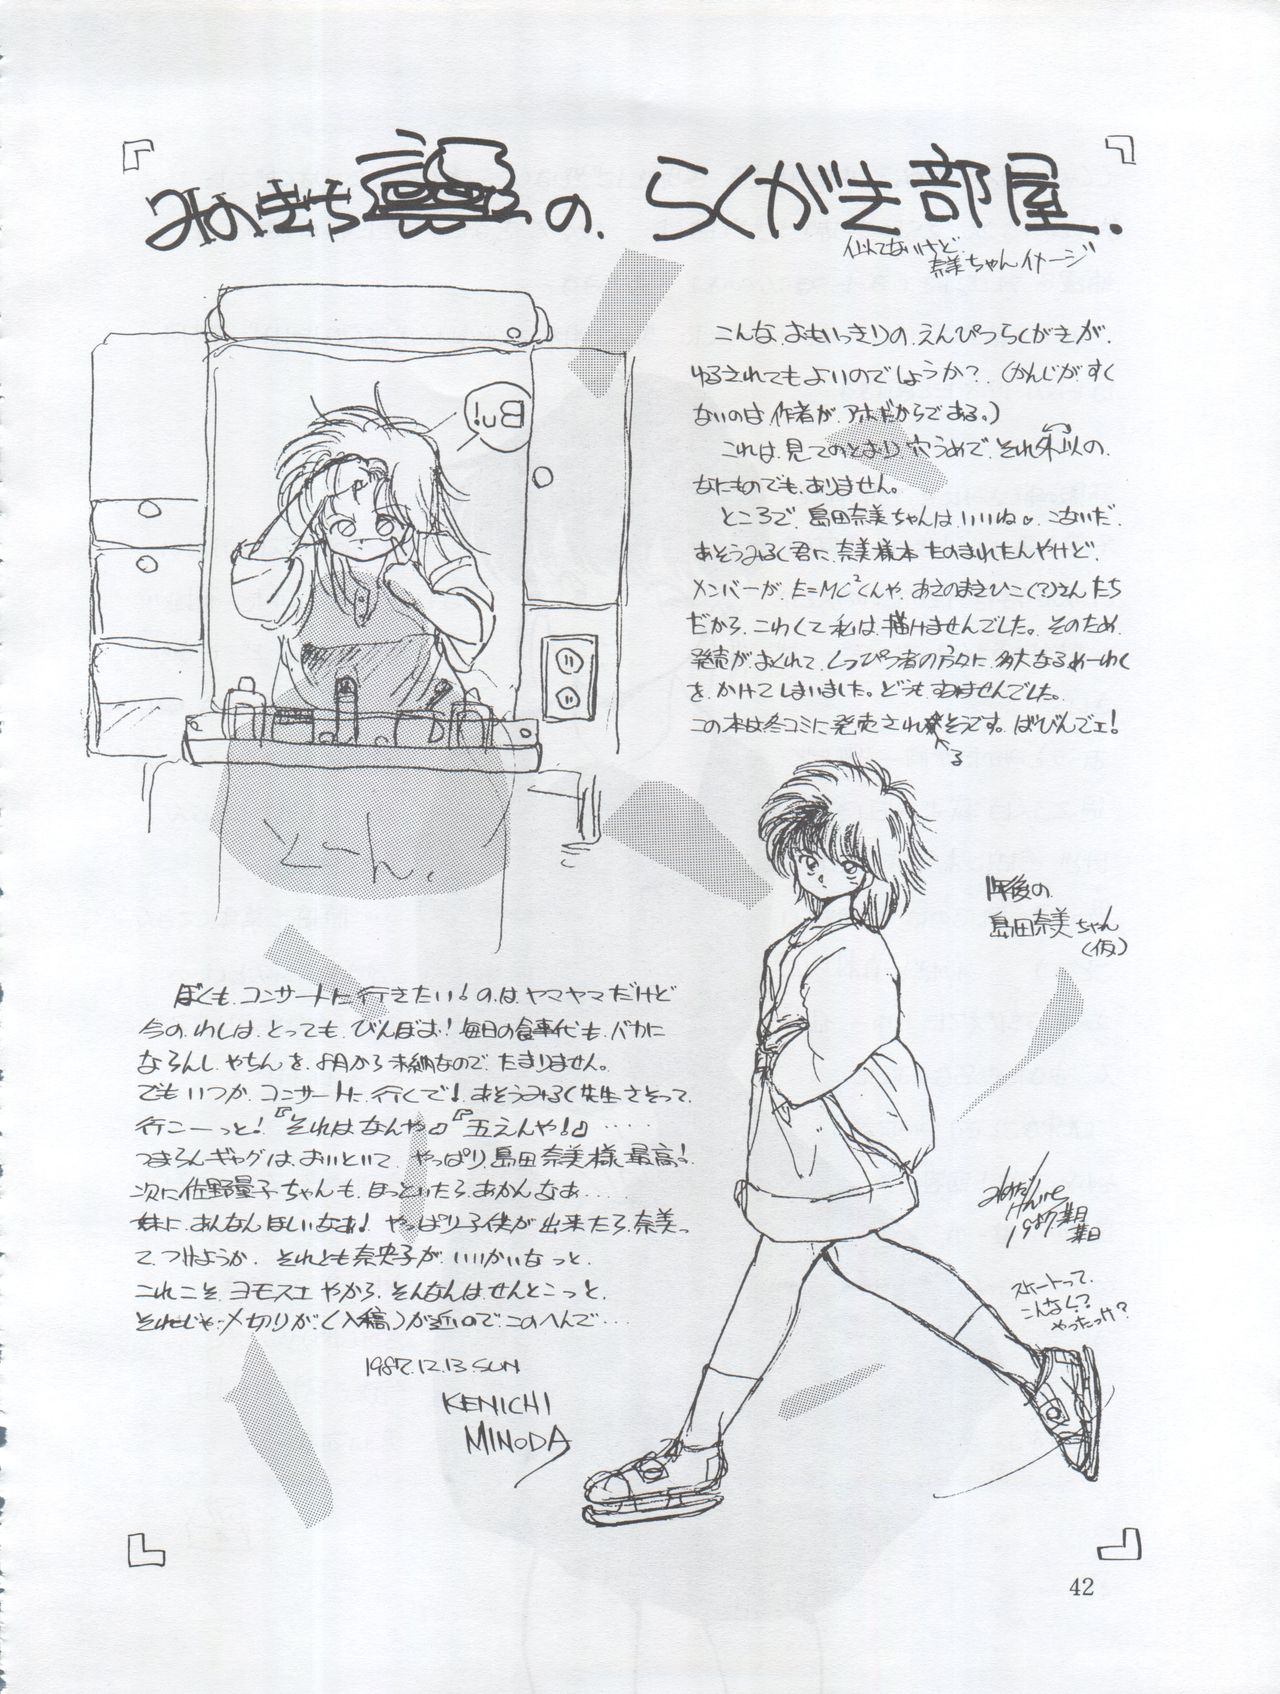 みのきち の、らくがき部屋.
似てないけど、
奈美ちゃんイメージ
こんな、おもいっきりの、えんぴつらくがきが、
ゆるされてもよいのでしょうか?(かんじがすく
ないのは作者が、アホだからである。)
これは、見てのとおり穴うめで、それ以外の
なにものでも、ありません。
ところで、島田奈美ちゃんは、いいね♡、こないだ、
あそうみるく君に、奈美様本たのまれたんやけど、
メンバーが、E=MC²くんや、あさのまさひこ(?)さんたち
だから、こわくて私は、描けませんでした。そのため、
発売が、おくれて、しっぴつ者の方々に、多大なるめーわく
を、かけてしまいました。どうもすみませんでした。
この本は冬コミに発売されるそうです。ばびんでェ!
Bu!
P
とーん.
1年後の、
島田奈美ちゃん
(仮)
ぼくも、コンサートに行きたい!のは、ヤマヤマだけど
今の、わしは、とっても、びんぼお!毎日の食事代も、バカに
ならんし、やちんを、8月から未納なので、たまりません。
でもいつか、コンサートに、行くで!、あそうみるく先生さそって、
行こーっと!『それはなんや♪』『五えんや!♪』‥‥
つまらんギャグは、おいといて、やっぱり、島田奈美様、最高!
次に佐野量子ちゃんも、ほっといたら、あかんなあ‥‥
妹に、あんなんほしいなあ!、やっぱり子供が出来たら、奈美っ
て、つけようか、それとも奈央子が、いいかいなっと、
これこそ、ヨモスエやから、そんなんは、せんとこっと、
それじゃ〆切りが、(入稿)が近いので、このへんで‥‥
1987.12.13.SUN
KENICHI
MINODA
1987
スケートって、
こんなん?
やったっけ?
42